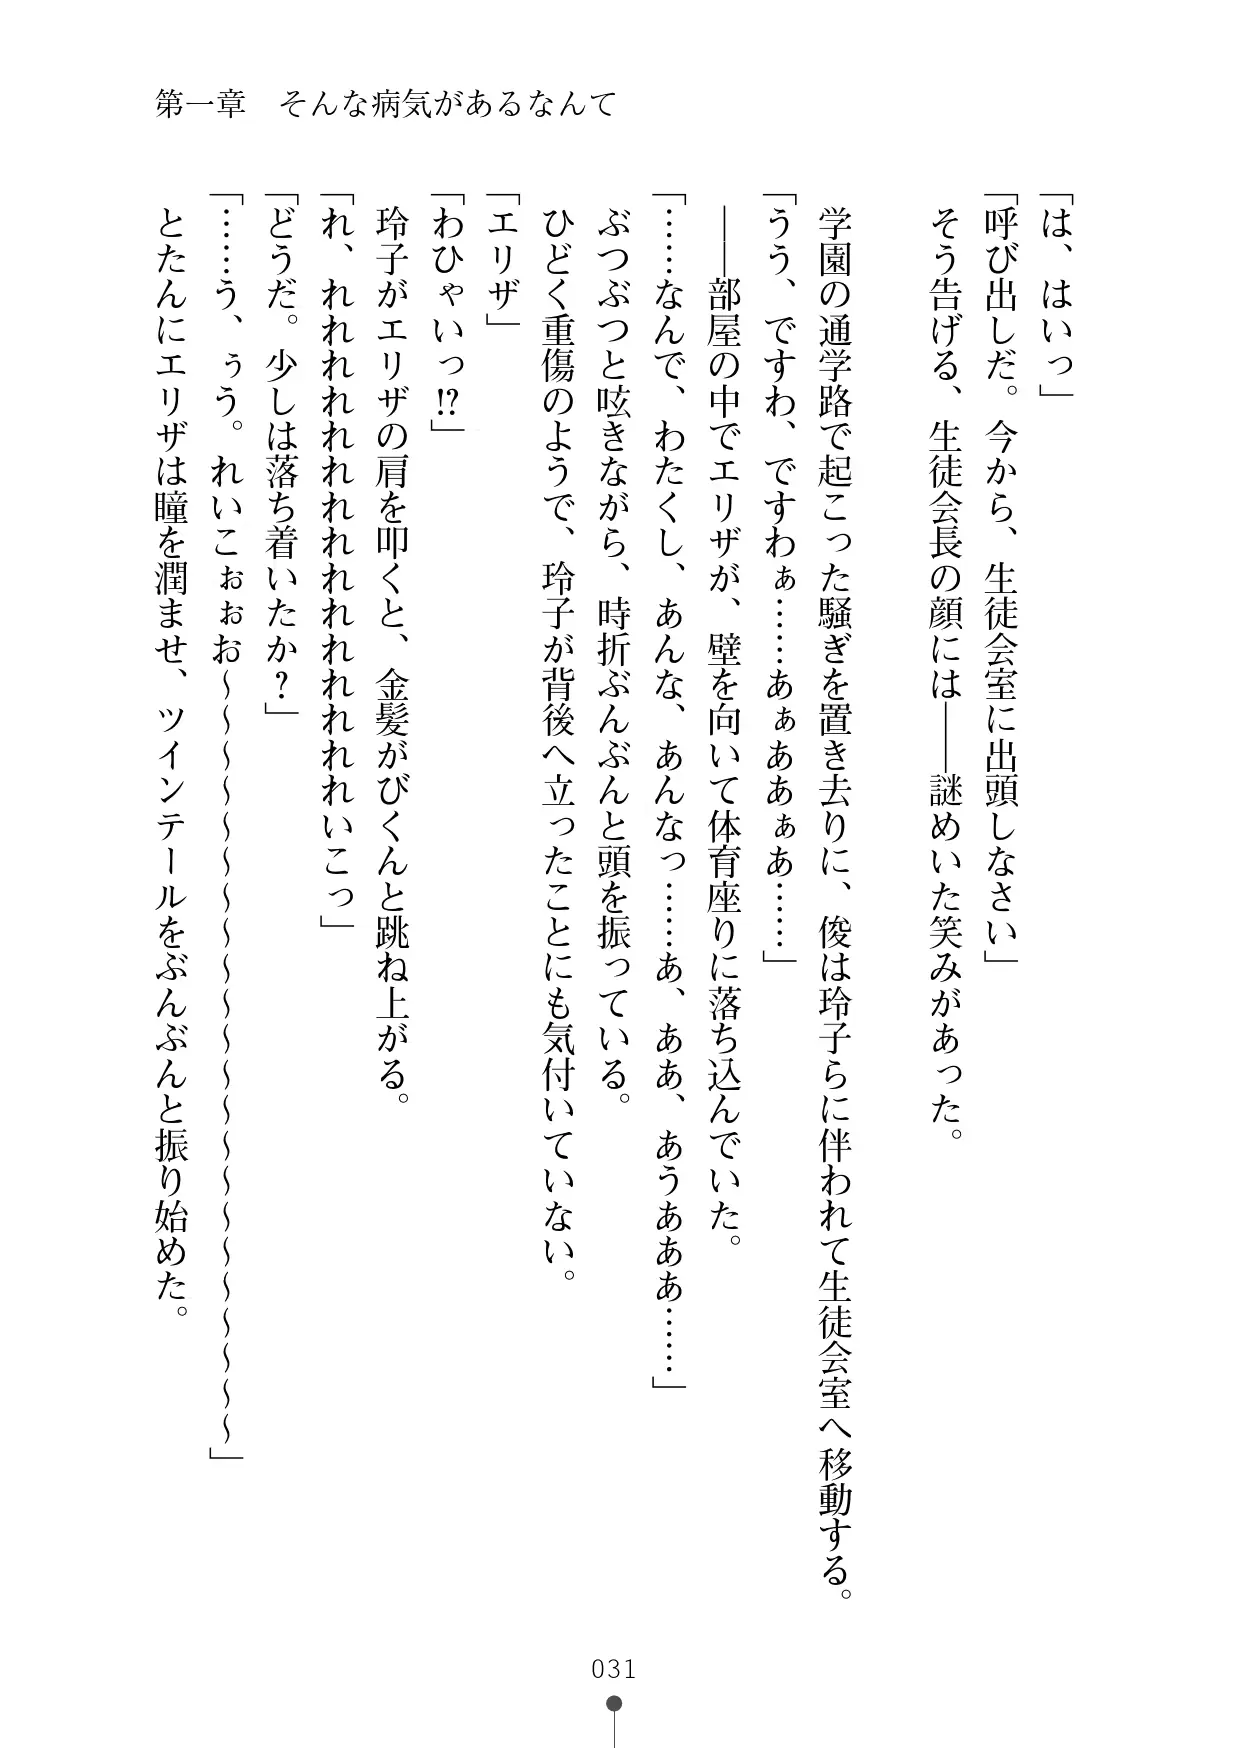 第一章　そんな病気があるなんて
「は、はいっ」
「呼び出しだ。今から、生徒会室に出頭しなさい」
そう告げる、生徒会長の顔には――謎めいた笑みがあった。
学園の通学路で起こった騒ぎを置き去りに、俊は玲子らに伴われて生徒会室へ移動する。
「うう、ですわ、ですわぁ……あぁああぁあ……」
――部屋の中でエリザが、壁を向いて体育座りに落ち込んでいた。
「……なんで、わたくし、あんな、あんなっ……あ、ああ、あうあああ……」
ぶつぶつと呟きながら、時折ぶんぶんと頭を振っている。
ひどく重傷のようで、玲子が背後へ立ったことにも気付いていない。
「エリザ」
「わひゃいっ!?」
玲子がエリザの肩を叩くと、金髪がびくんと跳ね上がる。
「れ、れれれれれれれれれれれれれれれいこっ」
「どうだ。少しは落ち着いたか？」
「……う、ぅう。れいこぉぉお～～～～～～～～～～～～～～～～～～～～～～」
とたんにエリザは瞳を潤ませ、ツインテールをぶんぶんと振り始めた。
031